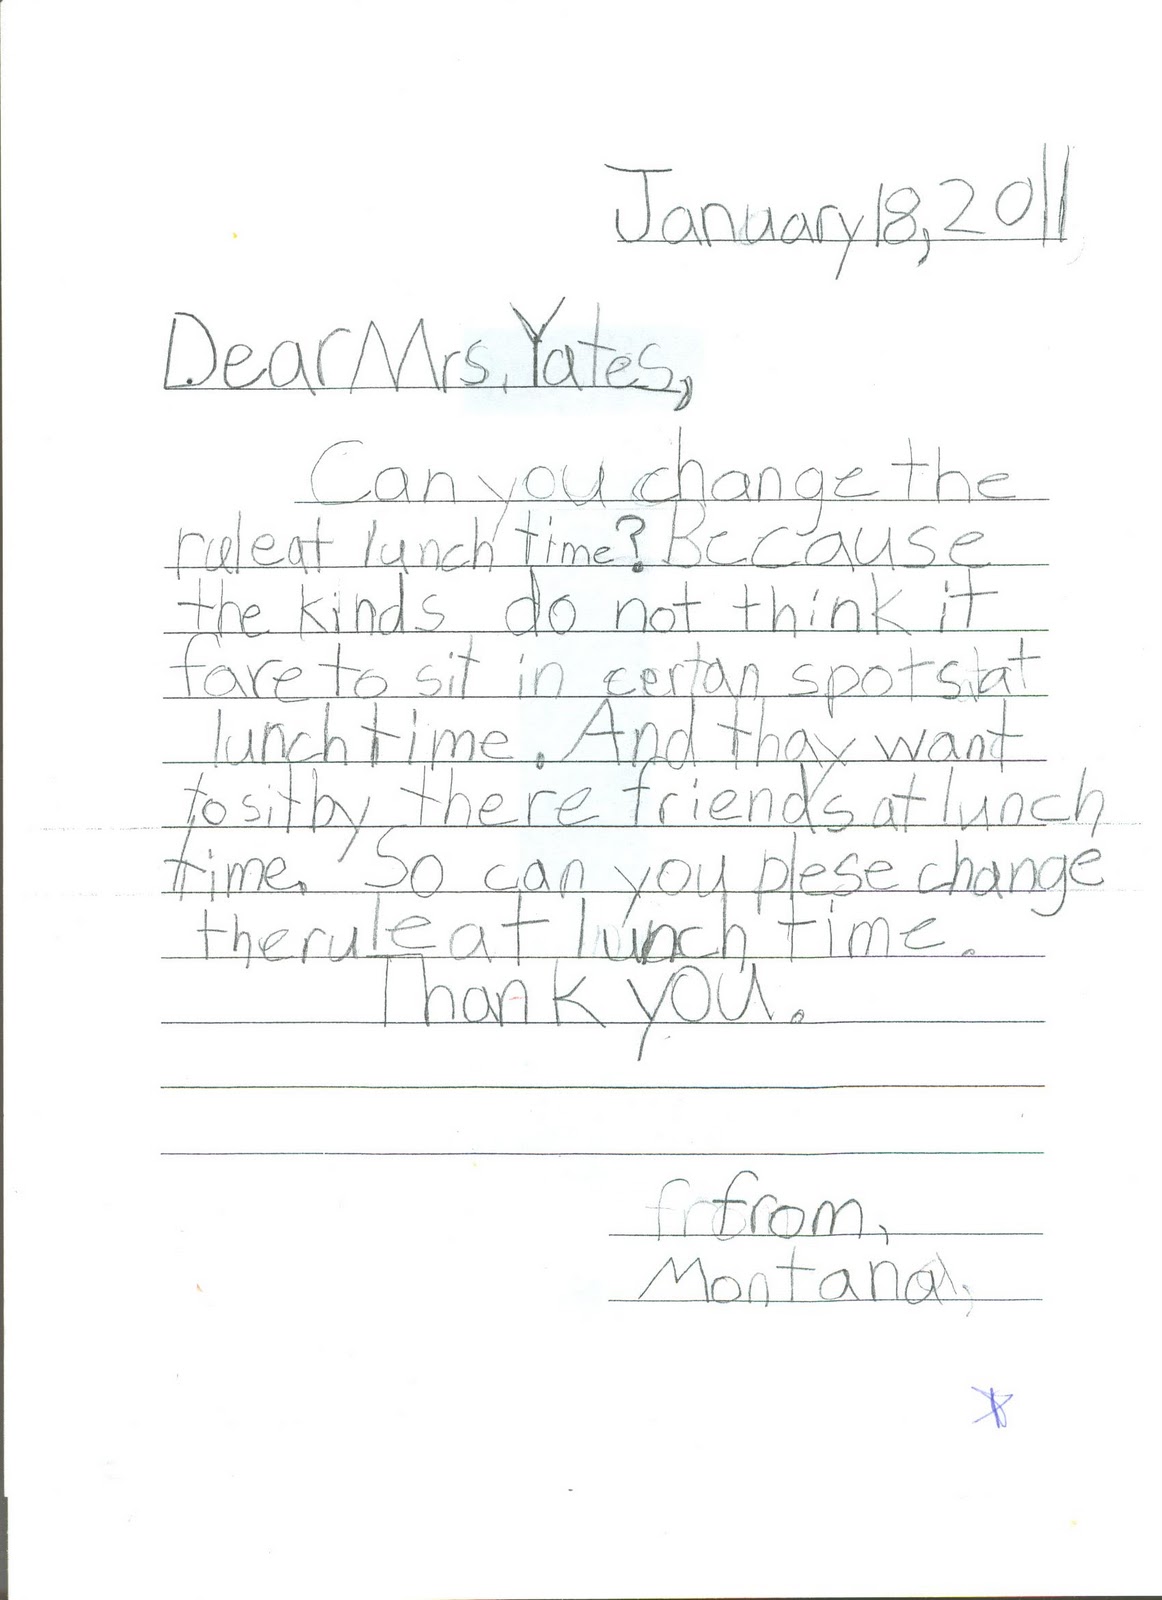 January 18, 2011
Dear Mrs. Yates,
Can you change the
rule at lunch time? Because
the kinds do not think it
fare to sit in certan spots at
lunch time. And thay want
to sit by there friends at lunch
time. So can you plese change
the rule at lunch time.
Thank you.
from,
Montana,